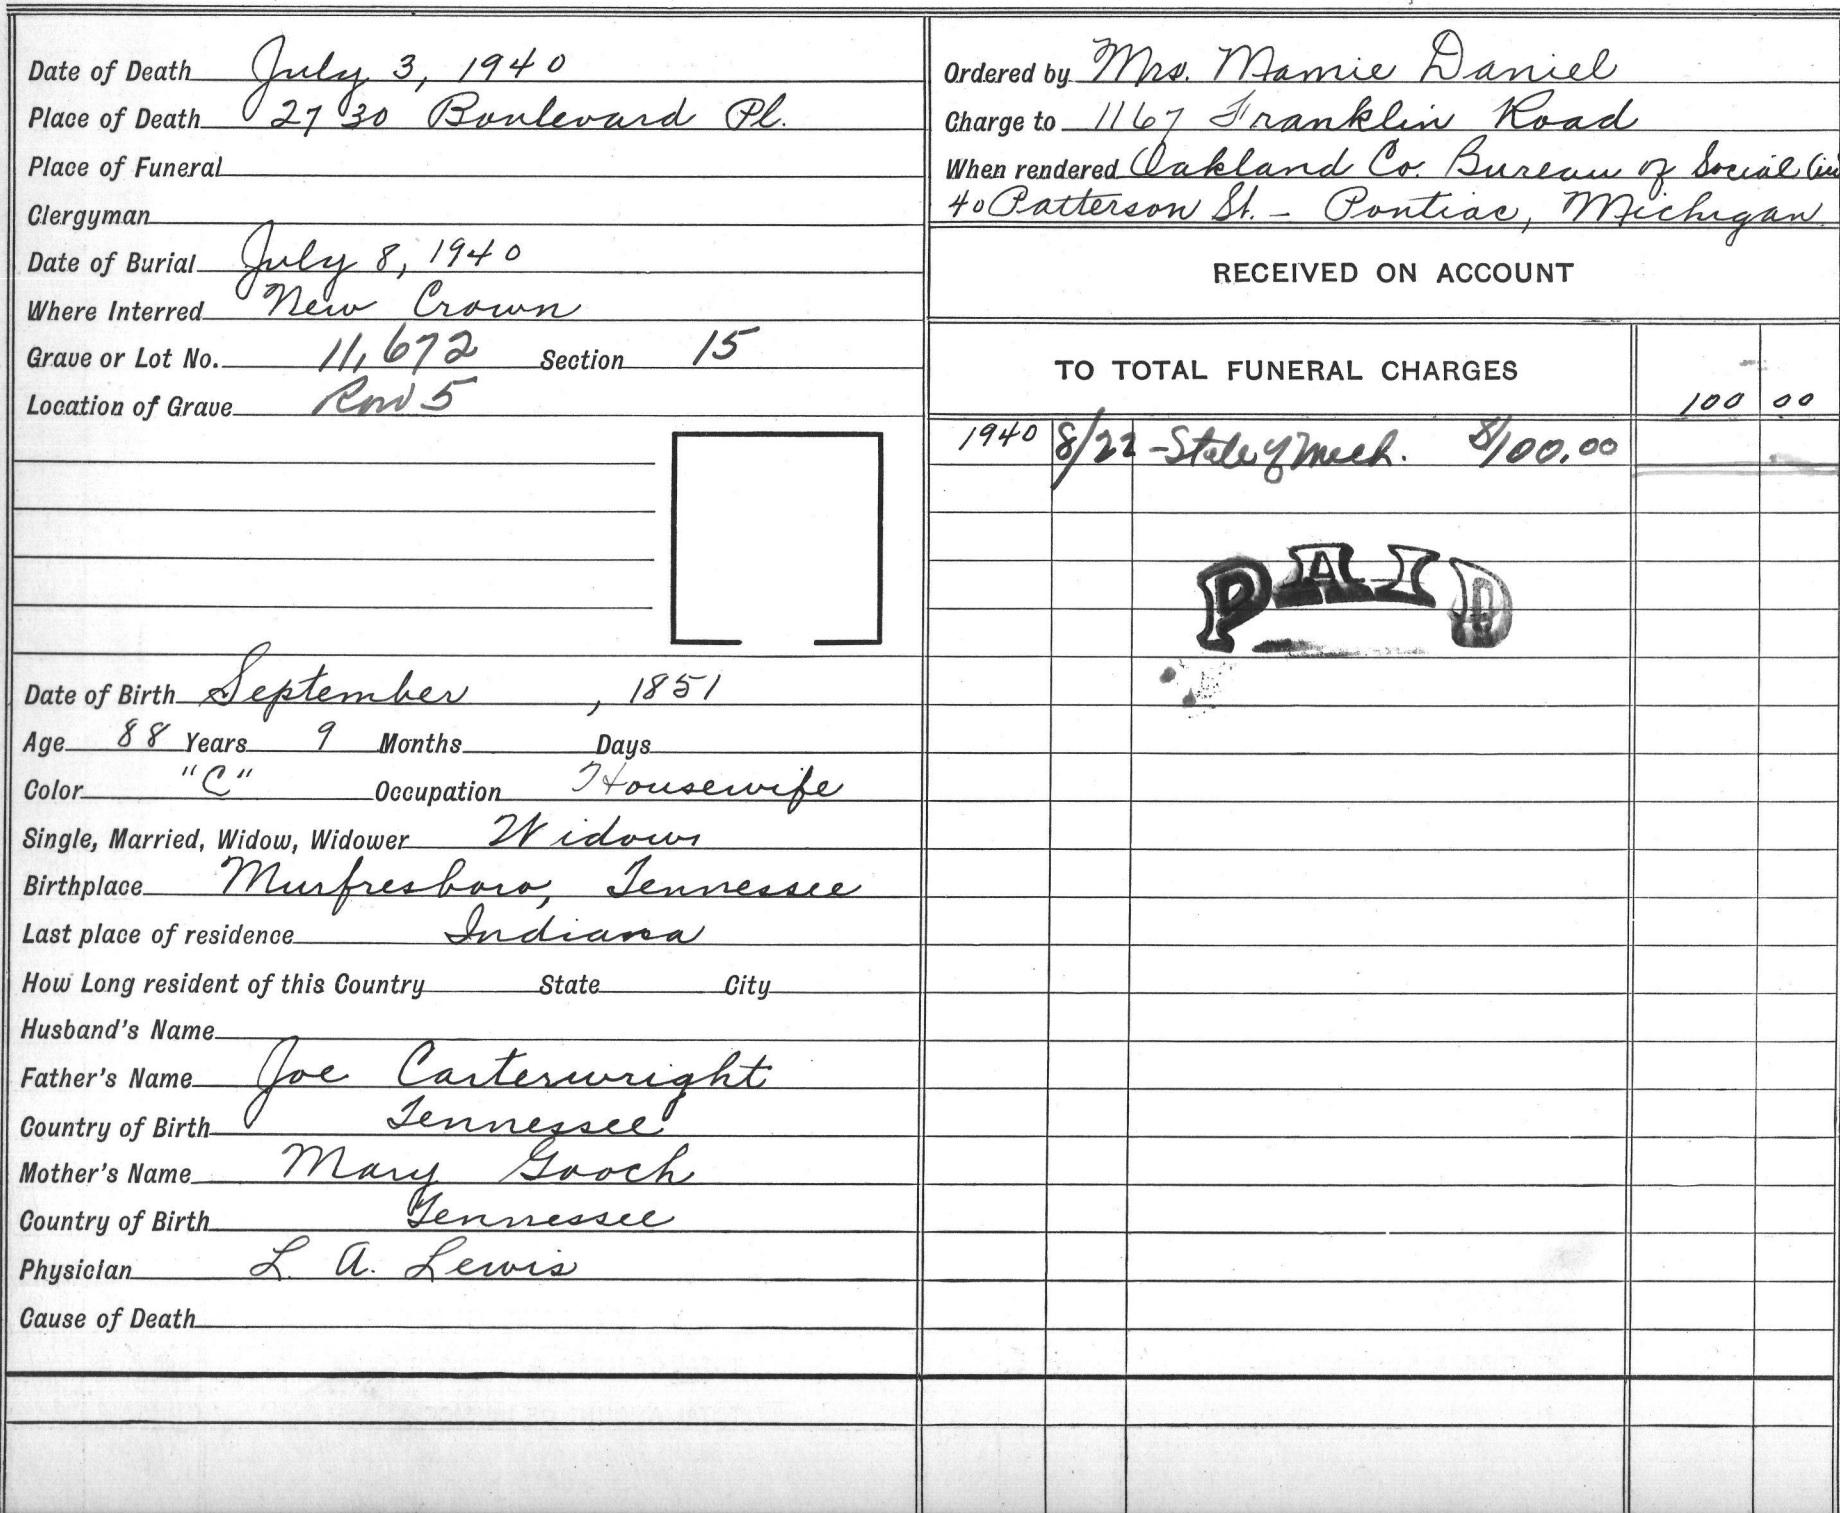 Date of Death July 3, 1940
Place of Death 2730 Boulevard Pl.
Place of Funeral
Clergyman
Date of Burial July 8, 1940
Where Interred New Crown
Grave or Lot No. 11,672 Section 15
Location of Grave Row 5
Date of Birth September , 1851
Age 88 Years 9 Months Days
Color "C" Occupation Housewife
Single, Married, Widow, Widower Widow
Birthplace Murfresboro, Tennessee
Last place of residence Indiana
How Long resident of this Country State City
Husband's Name
Father's Name Joe Carterwright
Country of Birth Tennessee
Mother's Name Mary Gooch
Country of Birth Tennessee
Physician L. A. Lewis
Cause of Death
Ordered by Mrs. Mamie Daniel
Charge to 1167 Franklin Road
When rendered Oakland Co. Bureau of Social
40 Patterson St. - Pontiac, Michigan
RECEIVED ON ACCOUNT
TO TOTAL FUNERAL CHARGES 100 00
1940 8/22 - State of Mich. $100.00
PAID